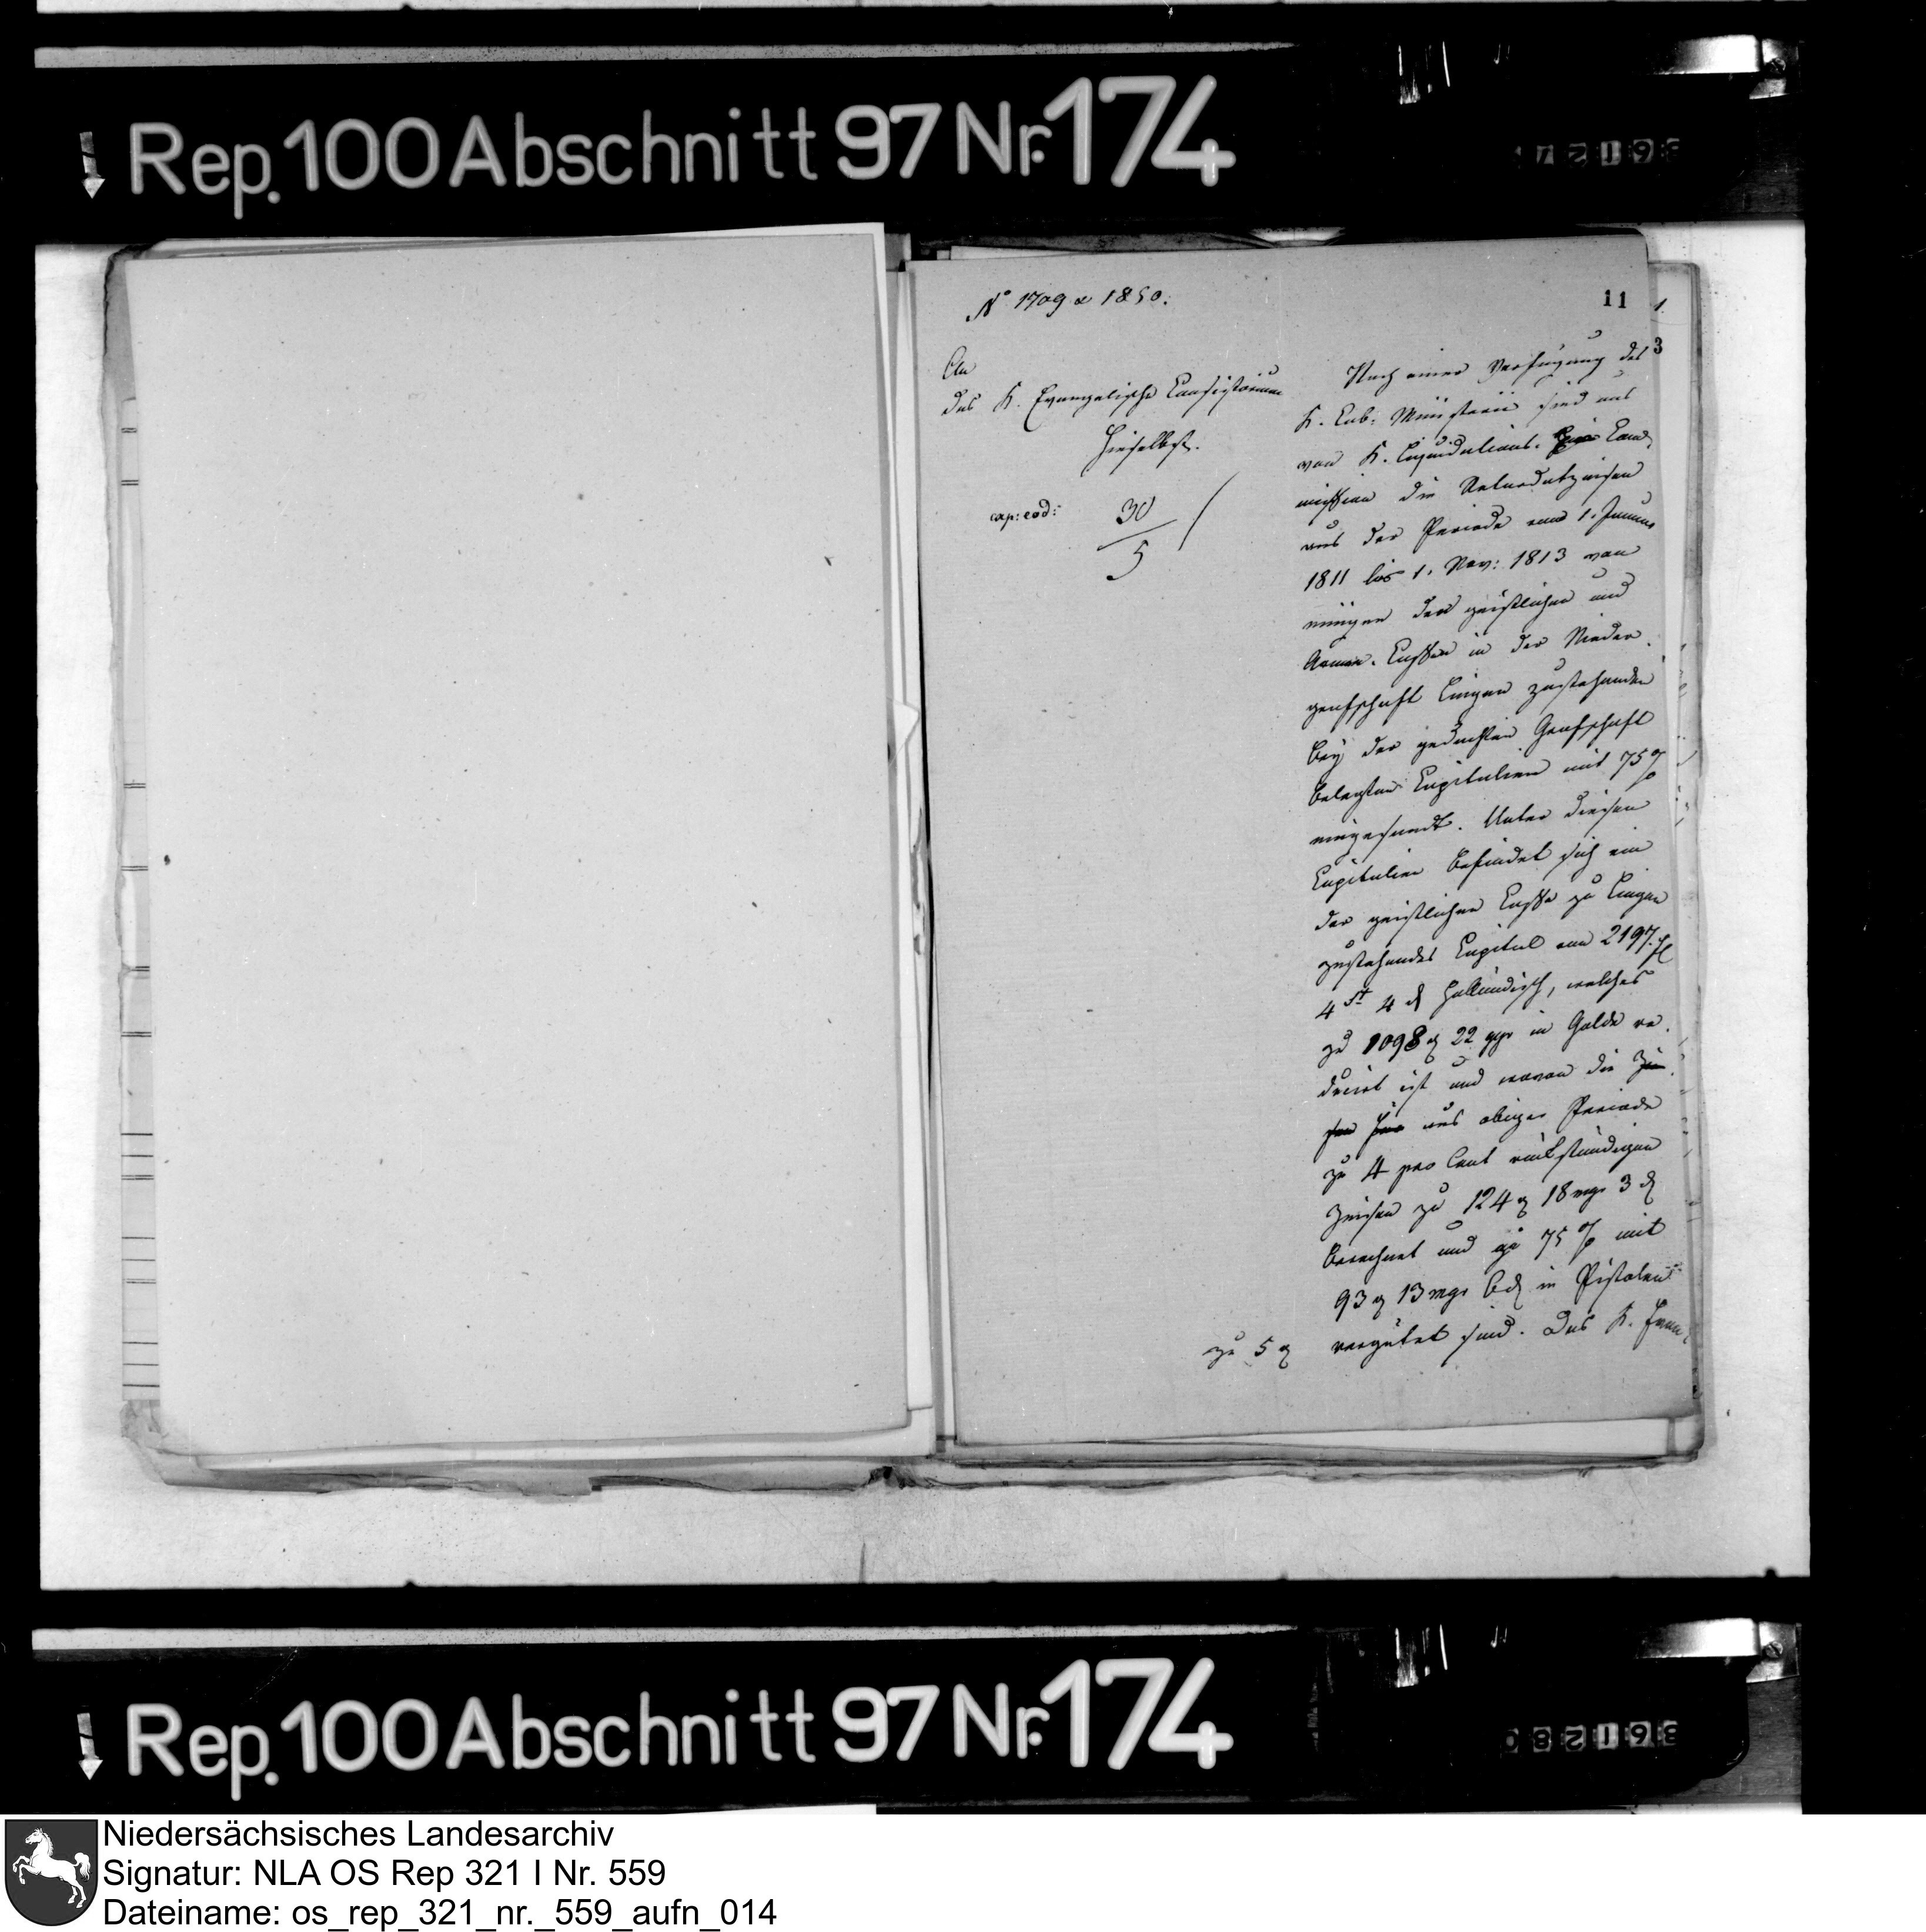 Rep. 100 Abschnitt 97 Nr. 174
No 1709 a 1850.
11
1.
3
An
das K. Evangelische Consistorium
Hieselbst.
cap: eod:
30
5
Nach einer Verfügung des
K. Cab: Ministerii sind uns
von K. Liquidations. Com
mission die Retardatzinsen
aus der Periode vom 1. Januar
1811 bis 1. Nov: 1813 von
einigen den geistlichen und
Armen. Cassen in der Nieder
grafschaft Lingen zustehenden
bey der gedachten Grafschaft
belegten Capitalien mit 75 %
eingesandt. Unter diesen
Capitalien befindet sich ein
der geistlichen Casse zu Lingen
zustehendes Capital von 2197 fl
4 St 4 d Holländisch, welches
zu 1098 rt 22 ggr in Golde re
ducirt ist und wovon die Zin
sen aus obiger Periode
zu 4 pro Cent rückständigen
Zinsen zu 124 rt 18 mgr 3 d
berechnet und zu 75 % mit
93 rt 13 mgr 6 d in Pistolen
zu 5 rt vergütet sind. Das K.
Rep. 100 Abschnitt 97 Nr. 174
Niedersächsisches Landesarchiv
Signatur: NLA OS Rep 321 I Nr. 559
Dateiname: os_rep_321_nr._559_aufn_014